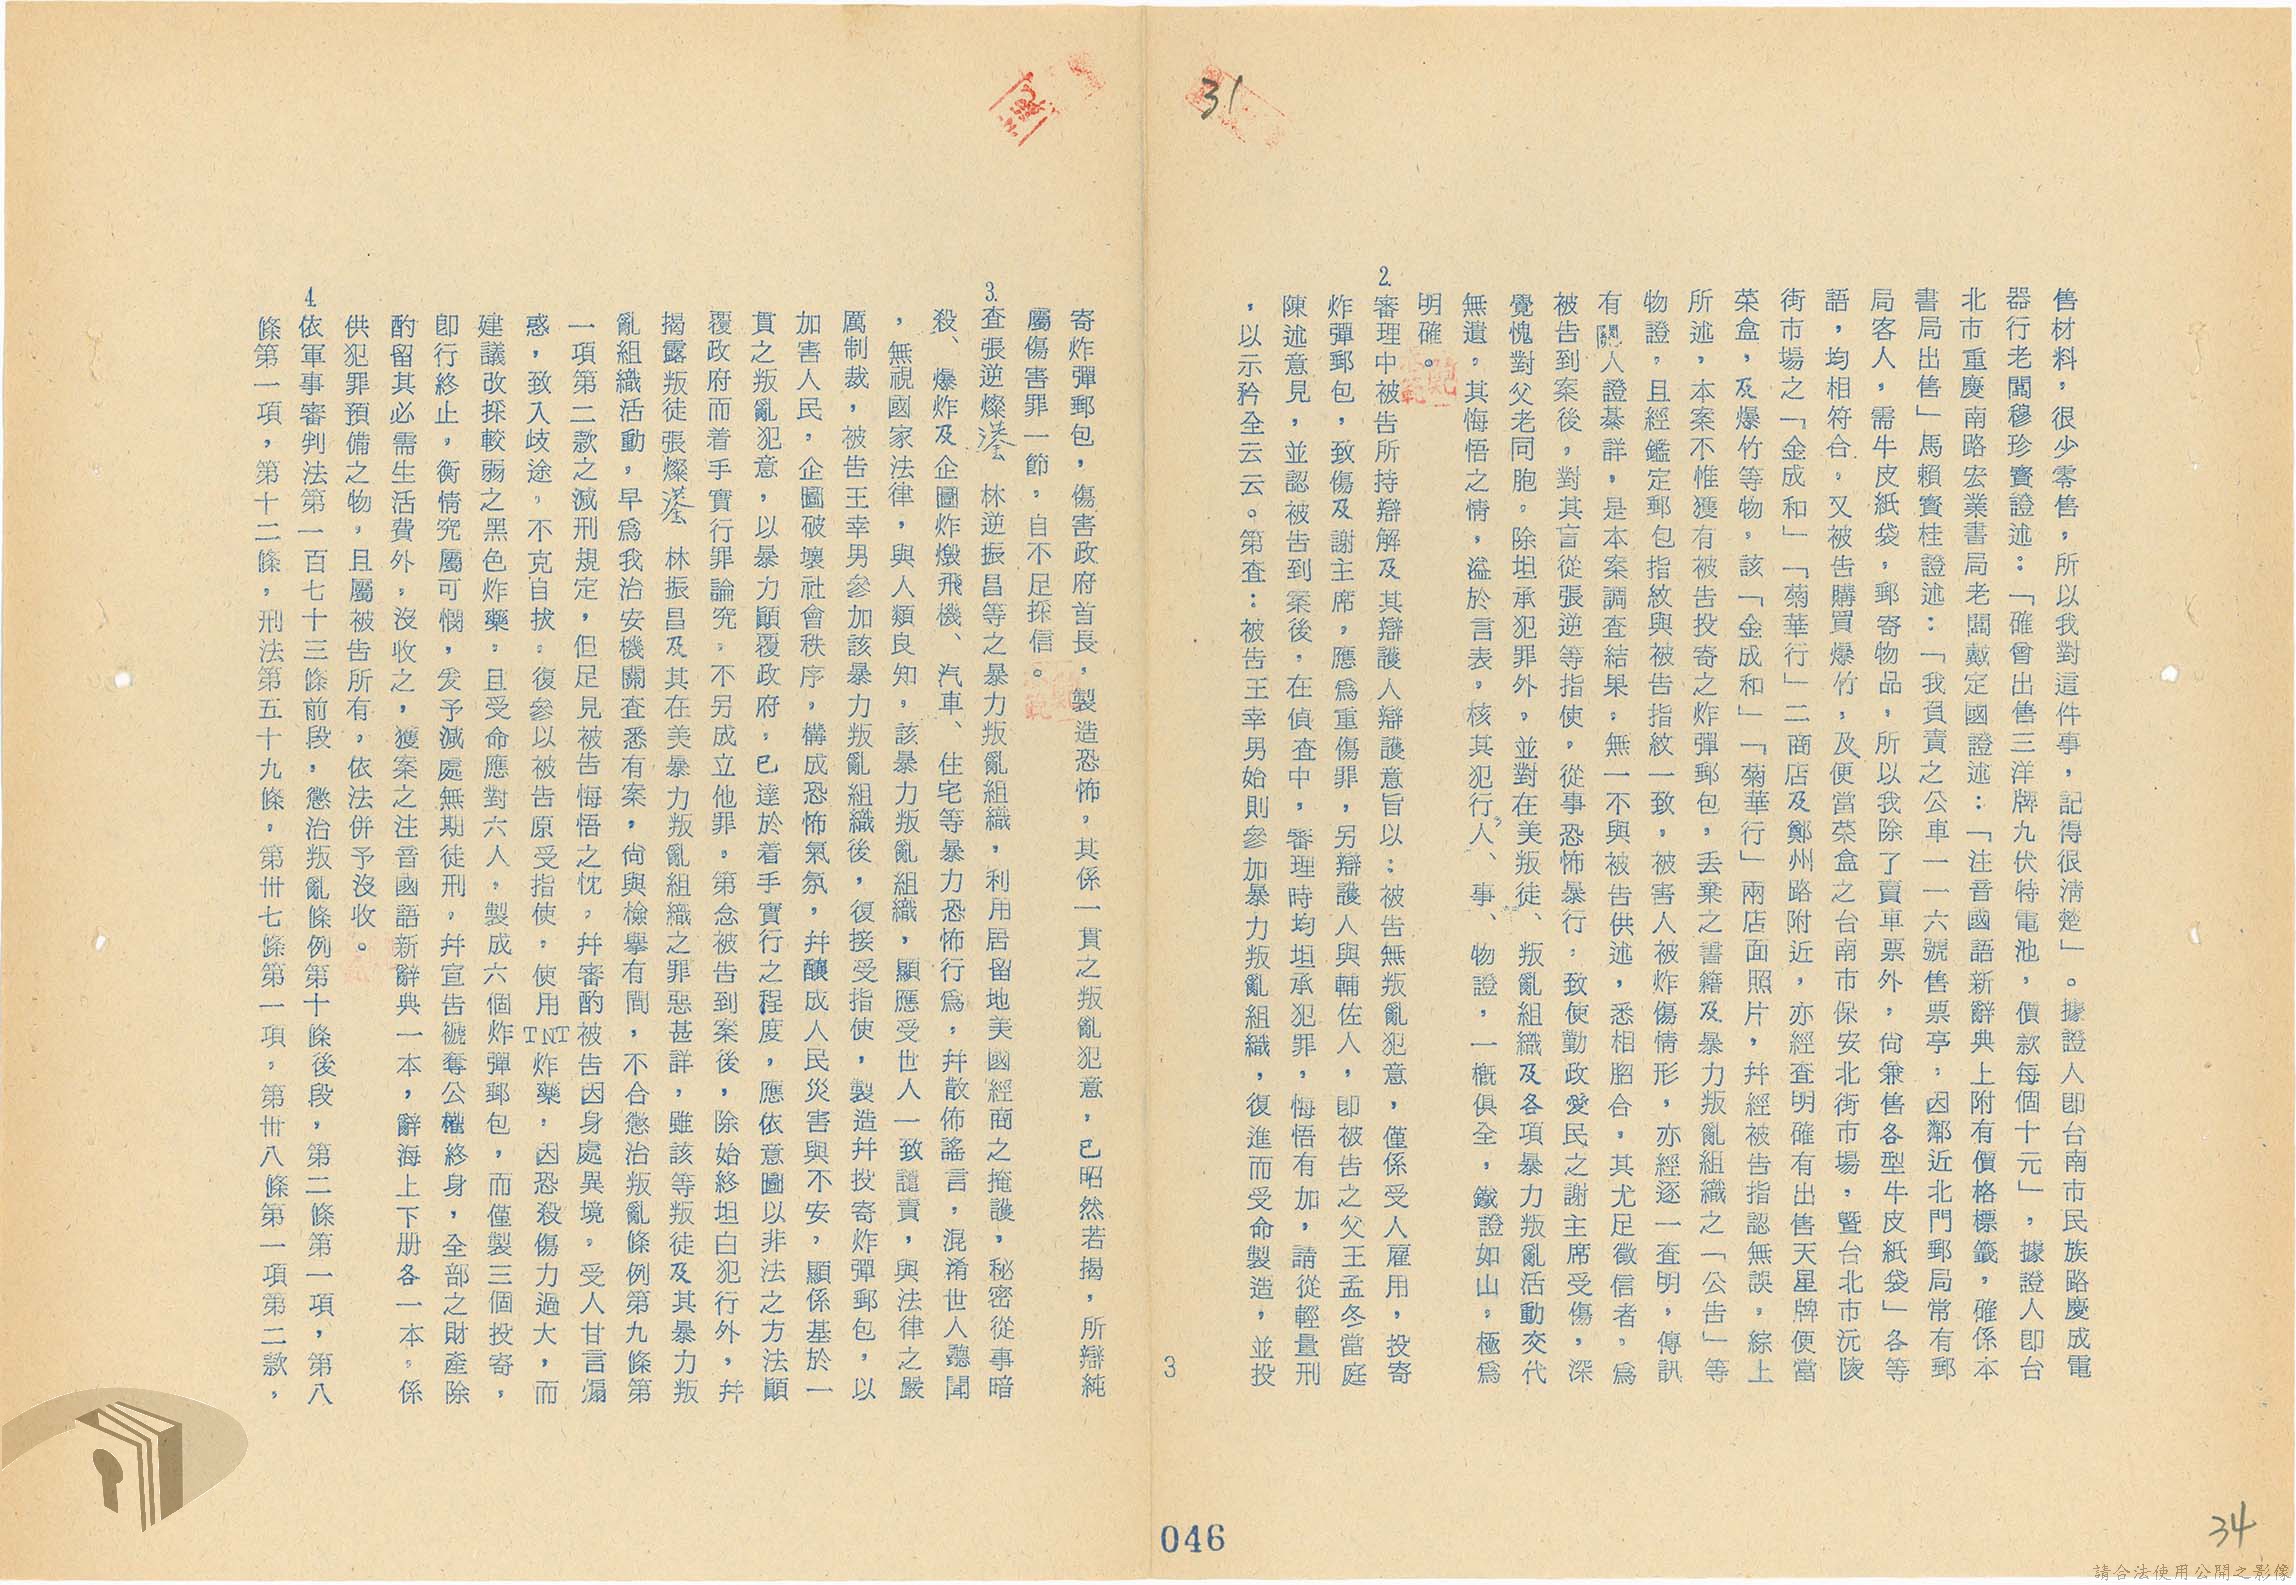 31
售材料，很少零售，所以我對這件事，記得很清楚」。據證人即台南市民族路慶成電
器行老闆穆珍寶證述：「確曾出售三洋牌九伏特電池，價款每個十元」，據證人即台
北市重慶南路宏業書局老闆戴定國證述：「注音國語新辭典上附有價格標籤，確係本
書局出售」馬賴寶桂證述：「我負責之公車一一六號售票亭，因鄰近北門郵局常有郵
局客人，需牛皮紙袋，郵寄物品，所以我除了賣車票外，尙兼售各型牛皮紙袋」各等
語，均相符合。又被告購買爆竹，及便當菜盒之台南市保安北街市場，暨台北市沅陵
街市場之「金成和」「菊華行」二商店及鄭州路附近，亦經查明確有出售天星牌便當
菜盒，及爆竹等物，該「金成和」「菊華行」兩店面照片，幷經被告指認無誤。綜上
所述，本案不惟獲有被告投寄之炸彈郵包，丢棄之書籍及暴力叛亂組織之「公告」等
物證，且經鑑定郵包指紋與被告指紋一致，被害人被炸傷情形，亦經逐一查明，傳訊
有關人證綦詳，是本案調查結果，無一不與被告供述，悉相脗合。其尤足徵信者，爲
被告到案後，對其盲從張逆等指使，從事恐怖暴行，致使勤政愛民之謝主席受傷，深
覺愧對父老同胞。除坦承犯罪外，並對在美叛徒、叛亂組織及各項暴力叛亂活動交代
無遺，其悔悟之情，溢於言表，核其犯行人、事、物證，一槪俱全，鐵證如山，極爲
明確。
2.審理中被告所持辯解及其辯護人辯護意旨以：被告無叛亂犯意，僅係受人雇用，投寄
炸彈郵包，致傷及謝主席，應爲重傷罪，另辯護人與輔佐人，即被告之父王孟冬當庭
陳述意見，並認被告到案後，在偵查中，審理時均坦承犯罪，悔悟有加，請從輕量刑
，以示矜全云云。第查：被告王幸男始則參加暴力叛亂組織，復進而受命製造，並投
3
寄炸彈郵包，傷害政府首長，製造恐怖，其係一貫之叛亂犯意，已昭然若揭，所辯純
屬傷害罪一節，自不足採信。
3.查張逆燦鍙 林逆振昌等之暴力叛亂組織，利用居留地美國經商之掩護，秘密從事暗
殺、爆炸及企圖炸燬飛機、汽車、住宅等暴力恐怖行爲，幷散佈謠言，混淆世人聽聞
，無視國家法律，與人類良知，該暴力叛亂組織，顯應受世人一致譴責，與法律之嚴
厲制裁，被告王幸男參加該暴力叛亂組織後，復接受指使，製造幷投寄炸彈郵包，以
加害人民，企圖破壞社會秩序，構成恐怖氣氛，幷釀成人民災害與不安，顯係基於一
貫之叛亂犯意，以暴力顚覆政府，已達於着手實行之程度，應依意圖以非法之方法顚
覆政府而着手實行罪論究，不另成立他罪。第念被告到案後，除始終坦白犯行外，幷
揭露叛徒張燦鍙 林振昌及其在美暴力叛亂組織之罪惡甚詳，雖該等叛徒及其暴力叛
亂組織活動，早爲我治安機關查悉有案，尙與檢舉有間，不合懲治叛亂條例第九條第
一項第二款之減刑規定，但足見被告悔悟之忱，幷審酌被告因身處異境，受人甘言煽
惑，致入歧途，不克自拔，復參以被告原受指使，使用TNT炸藥，因恐殺傷力過大，而
建議改採較弱之黑色炸藥，且受命應對六人，製成六個炸彈郵包，而僅製三個投寄，
即行終止，衡情究屬可憫，爰予減處無期徒刑，幷宣告褫奪公權終身，全部之財產除
酌留其必需生活費外，沒收之，獲案之注音國語新辭典一本，辭海上下册各一本，係
供犯罪預備之物，且屬被告所有，依法併予沒收。
4.依軍事審判法第一百七十三條前段，懲治叛亂條例第十條後段，第二條第一項，第八
條第一項，第十二條，刑法第五十九條，第卅七條第一項，第卅八條第一項第二款，
046
34
請合法使用公開之影像